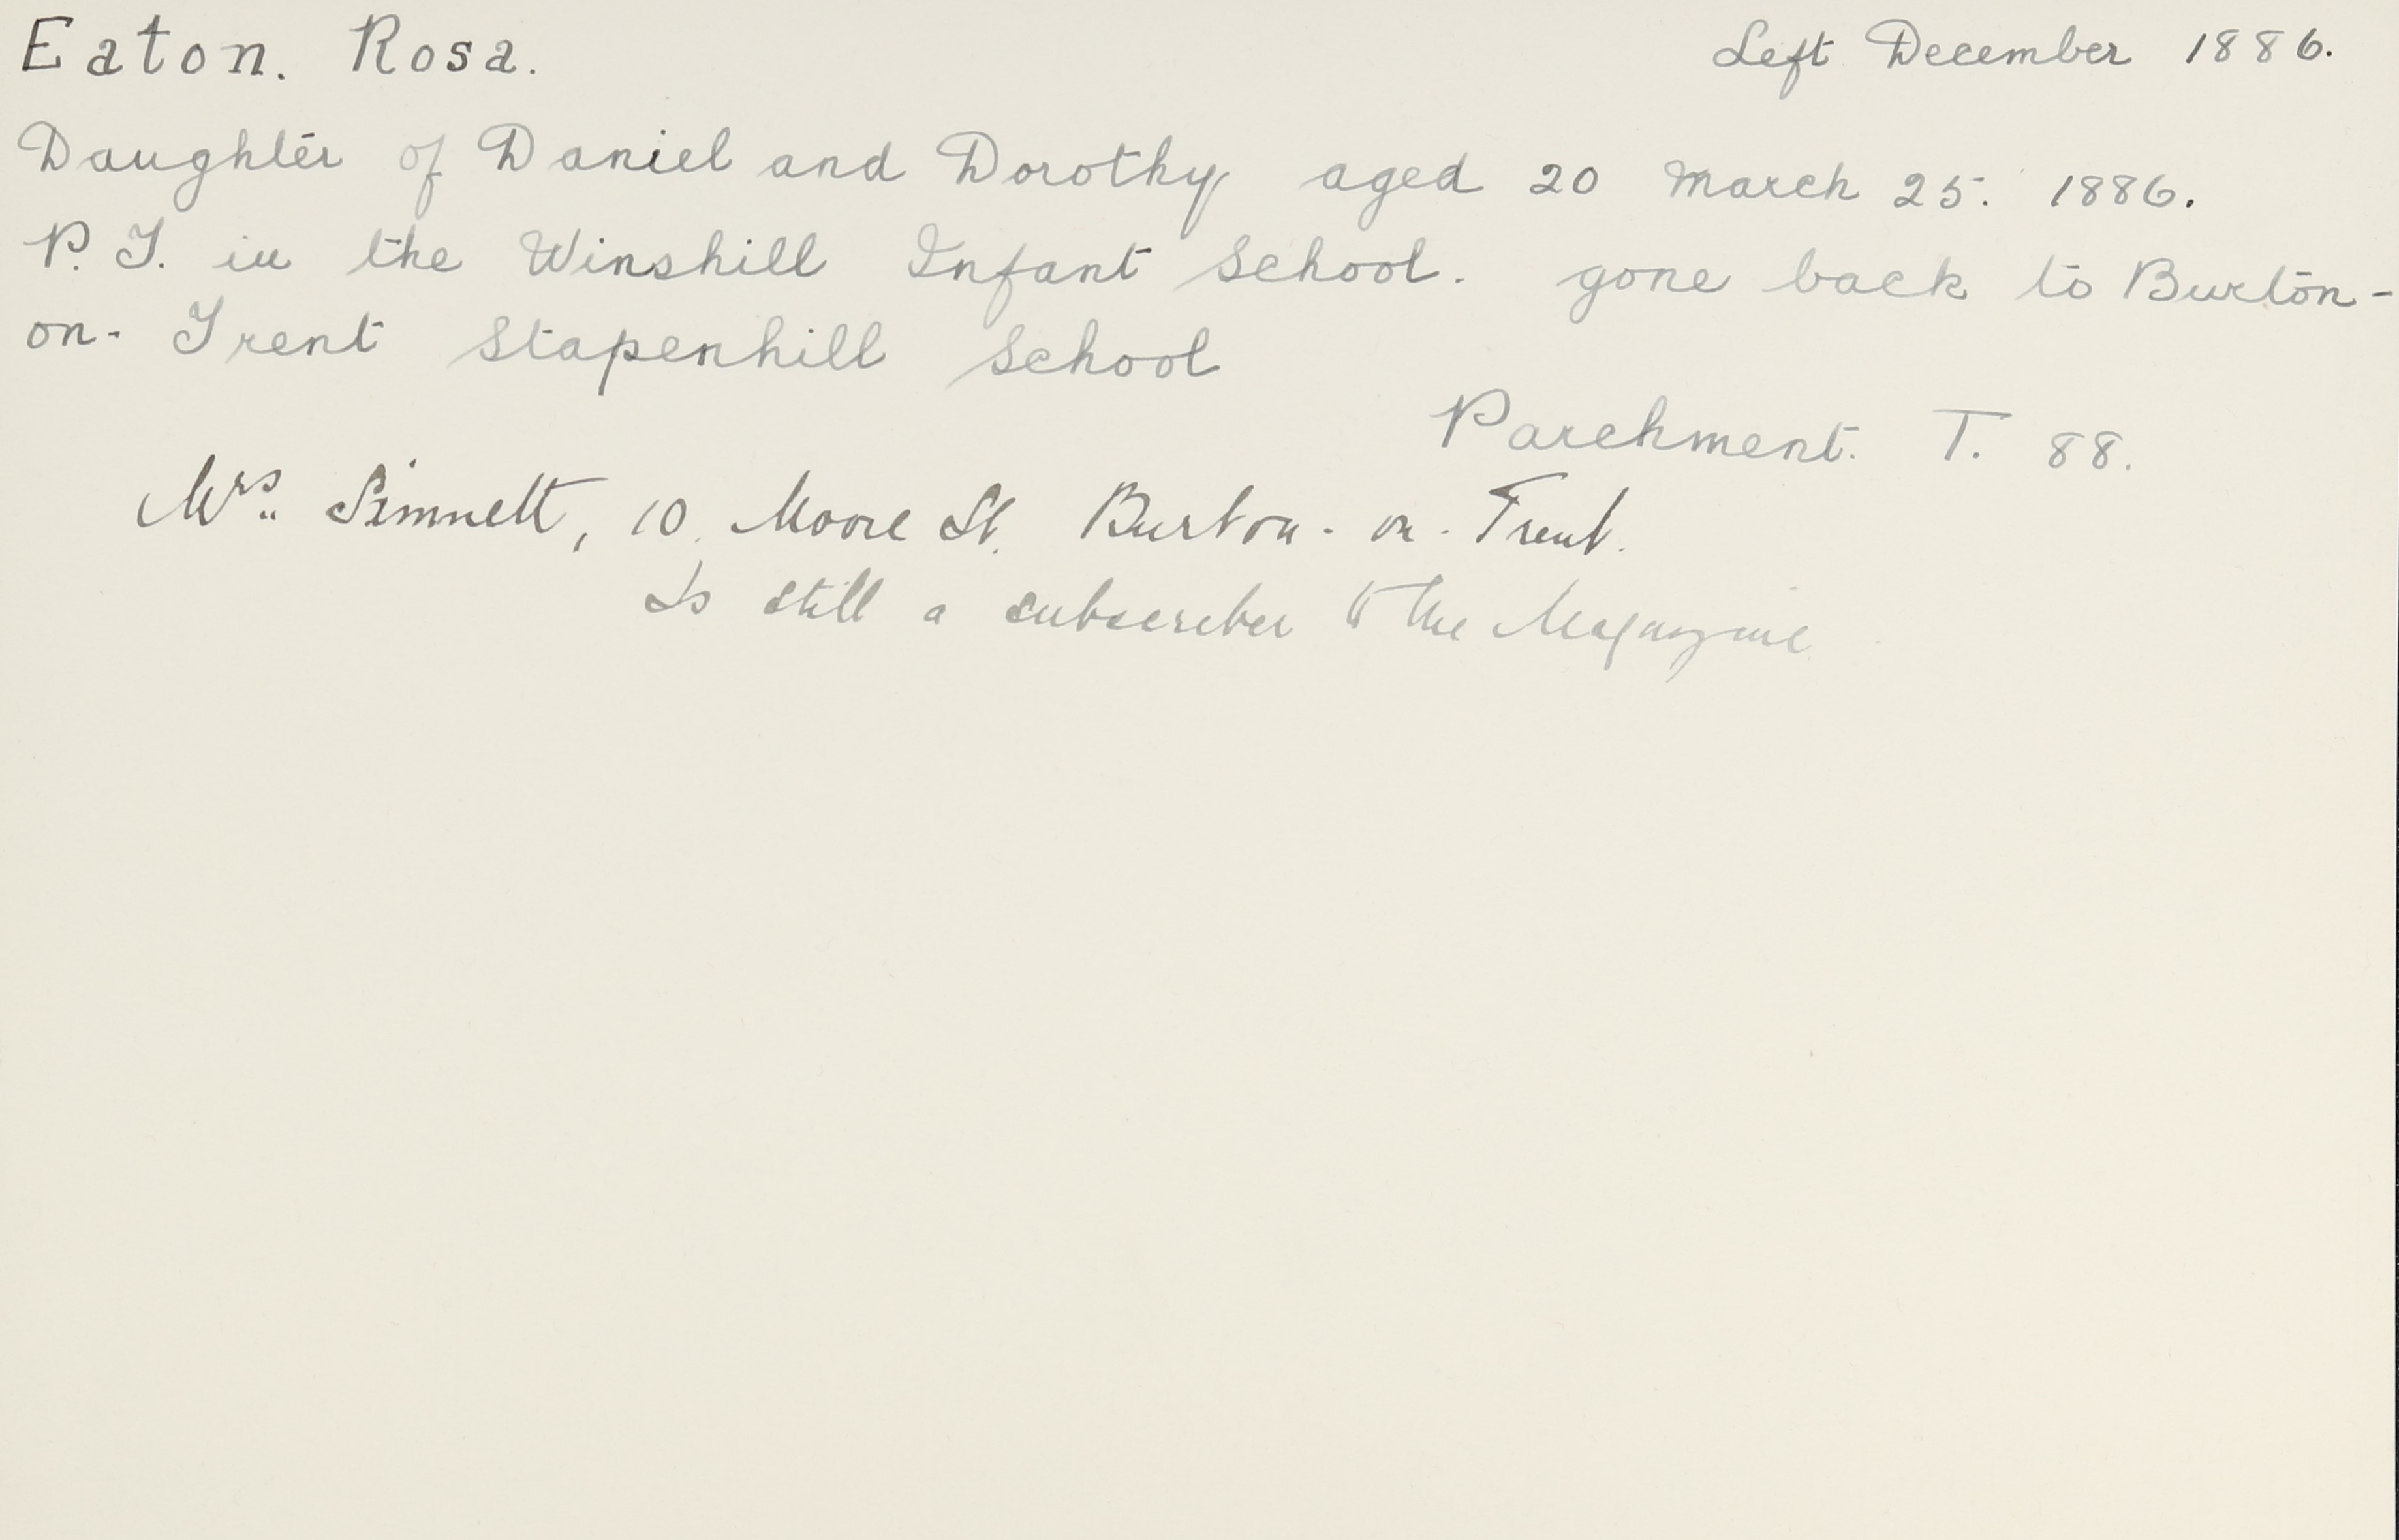 Eaton. Rosa. Left December 1886.
Daughter of Daniel and Dorothy aged 20 March 25. 1886.
P. T. in the Winshill Infant School. gone back to Burton-
on-Trent Stapenhill School
Parchment. T. 88.
Mrs. Simnett, 10. Moore St. Burton-on-Trent.
Is still a subscriber to the Magazine